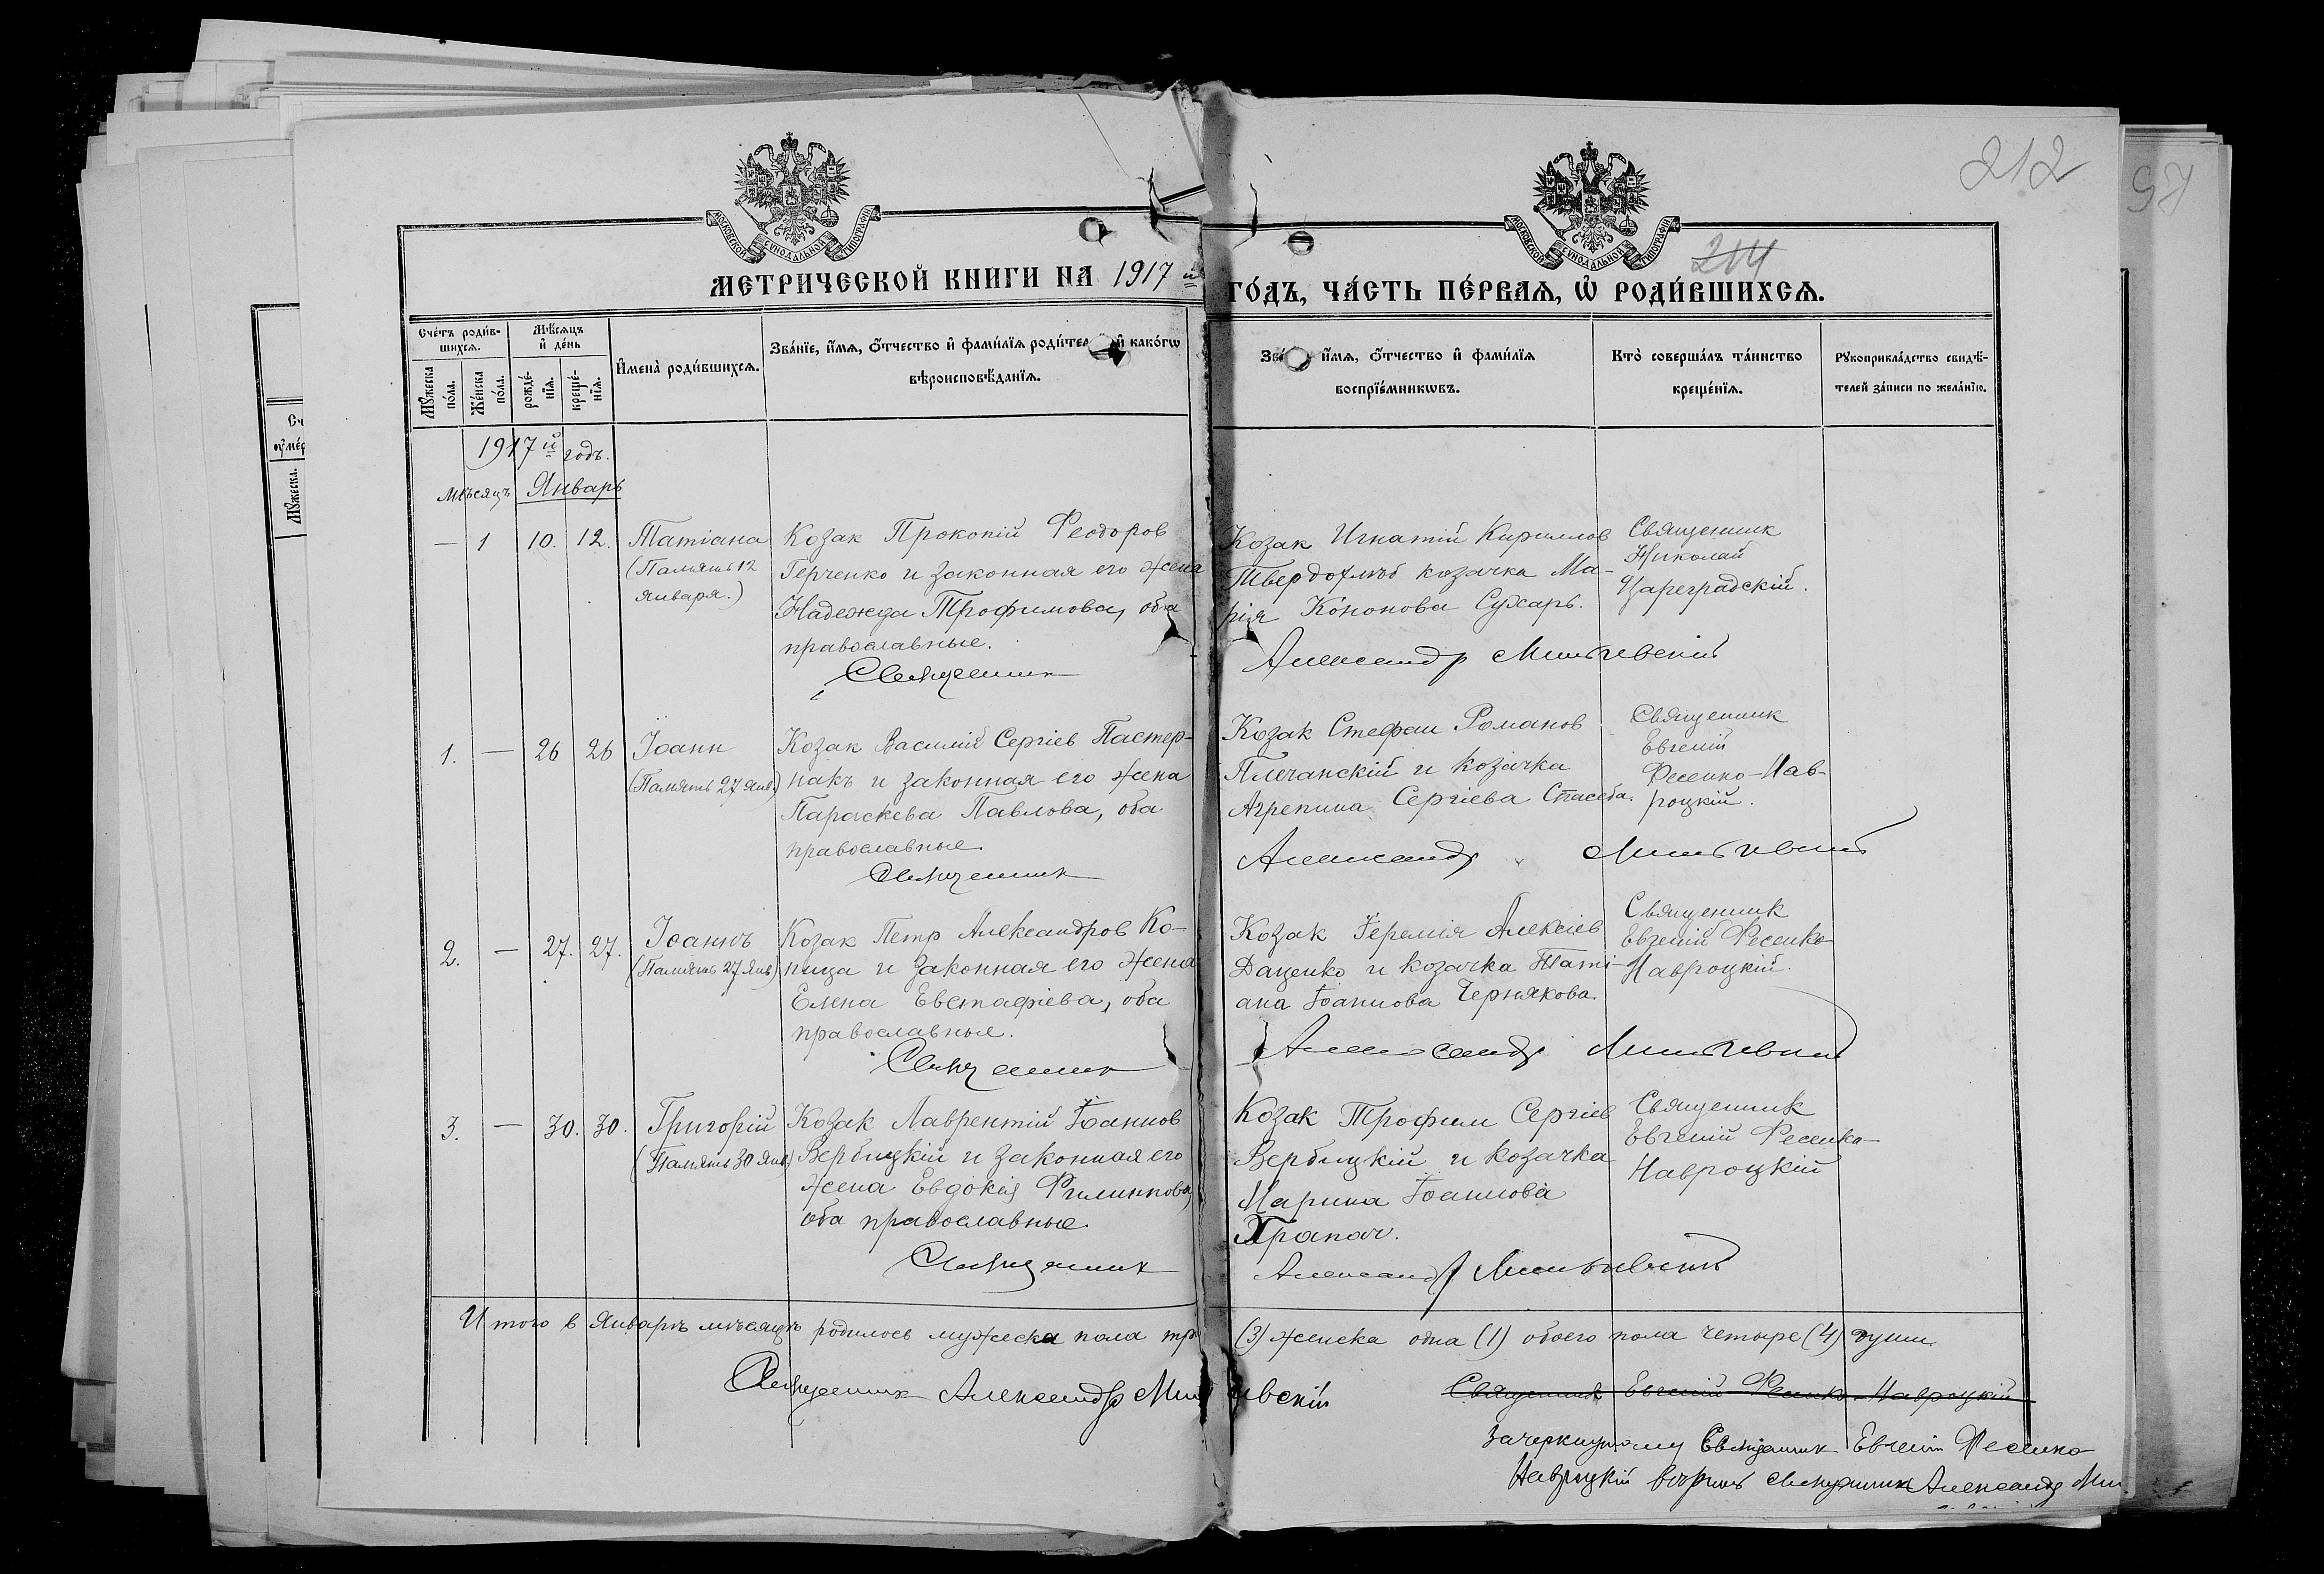 212
97
214
МОСКОВСКОЙ СѴНОДАЛЬНОЙ ТИПОГРАФІИ
МОСКОВСКОЙ СѴНОДАЛЬНОЙ ТИПОГРАФІИ
МЕТРИЧЕСКОЙ КНИГИ НА 1917й
ГО́ДЪ, ЧА́СТЬ ПЕ́РВАЯ, Ѡ҆ РОДИ́ВШИХСЯ.
Сче́тъ роди́в-
шихся.
Мѣ́сяцъ
и҆ де́нь
Мꙋ́жеска
по́ла.
Же́нска
по́ла.
рожде́-
нїя.
креще́-
нїя.
И҆мена̀ роди́вшихся.
Зва́нїе, и҆́мя, ѻ҆́тчество и҆ фами́лїя роди́тел и҆ како́гѡ
вѣроисповѣ́данїя.
Зва́ и҆́мя, ѻ҆́тчество и҆ фами́лїя
воспрїе́мникѡвъ.
Кто̀ соверша́лъ та́инство
креще́нїя.
Рꙋкоприкла́дство свидѣ́-
телей за́писи по жела́нїю.
1917й годъ.
Мѣсяцъ Январь
— 1 10. 12.
Татіана
(Память 12
января.)
Козак Прокопій Феодоров
Герченко и законная его жена
Надежда Трофимова, оба
православные.
Священник
Козак Игнатій Кириллов
Твердохлѣб козачка Ма-
рія Кононова Сухарь.
Священник
Николай
Цареградскій.
Александр
1. — 26 26
Іоанн
(Память 27 янв.)
Козак Василій Сергіев Пастер-
накъ и законная его жена
Параскева Павлова, оба
православные
Священник
Козак Стефан Романов
Плечанскій и козачка
Агрепина Сергіева
Священник
Евгеній
Фесенко-Нав-
роцкій.
Александр
2. — 27. 27.
Іоаннъ
(Память 27 Янв)
Козак Петр Александров Ко-
пица и законная его жена
Елена Евстафіева, оба
православные.
Священник
Козак Іеремія Алексіев
Даценко и козачка Таті-
ана Іоаннова Чернякова.
Священник
Евгеній Фесенко-
Навроцкій.
Александр
3. — 30. 30.
Григорій
(Память 30 Янв)
Козак Лаврентій Іоаннов
Вербицкій и законная его
жена Евдокія Филиппова,
оба православные.
Священник
Козак Трофим Сергіев
Вербицкій и козачка
Марина Іоаннова
Священник
Евгеній Фесенко-
Навроцкій
Александр
Итого в Январѣ мѣсяцѣ родилось мужеска пола три (3) женска одна (1) обоего пола четыре (4) души.
Священник Александр
Священник Евгеній Фесенко-Навроцкій
Зачеркнутому Священник Евгеній Фесенко-
Навроцкій вѣрить Священник Александр